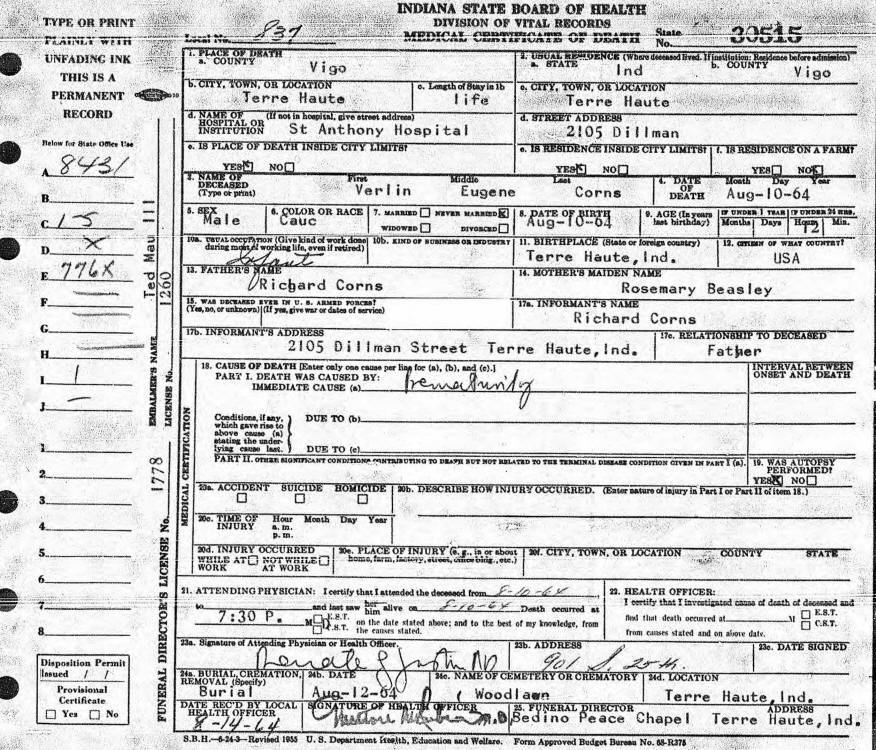 INDIANA STATE BOARD OF HEALTH
DIVISION OF VITAL RECORDS
MEDICAL CERTIFICATE OF DEATH
Local No. 837
State No. 30515
TYPE OR PRINT
PLAINLY WITH
UNFADING INK
THIS IS A
PERMANENT
RECORD
Below for State Office Use
A. 8431
B.
C. 1-5
D. X
E. 776X
F.
G.
H.
I. 1
J. —
1.
2.
3.
4.
5.
6.
7.
8.
Disposition Permit
Issued / /
Provisional
Certificate
☐ Yes ☐ No
EMBALMER'S NAME Ted Mau III
LICENSE No. 1260
FUNERAL DIRECTOR'S LICENSE No. 1778
MEDICAL CERTIFICATION
1. PLACE OF DEATH
a. COUNTY Vigo
2. USUAL RESIDENCE (Where deceased lived. If institution: Residence before admission)
a. STATE Ind b. COUNTY Vigo
b. CITY, TOWN, OR LOCATION Terre Haute
c. Length of Stay in 1b life
c. CITY, TOWN, OR LOCATION Terre Haute
d. NAME OF HOSPITAL OR INSTITUTION (If not in hospital, give street address) St Anthony Hospital
d. STREET ADDRESS 2105 Dillman
e. IS PLACE OF DEATH INSIDE CITY LIMITS?
YES☒ NO☐
e. IS RESIDENCE INSIDE CITY LIMITS?
YES☒ NO☐
f. IS RESIDENCE ON A FARM?
YES☐ NO☒
3. NAME OF DECEASED (Type or print)
First Middle Last
Verlin Eugene Corns
4. DATE OF DEATH Month Day Year
Aug-10-64
5. SEX Male
6. COLOR OR RACE Cauc
7. MARRIED ☐ NEVER MARRIED ☒
WIDOWED ☐ DIVORCED ☐
8. DATE OF BIRTH Aug-10-64
9. AGE (In years last birthday)
IF UNDER 1 YEAR Months Days
IF UNDER 24 HRS. Hours Min.
12
10a. USUAL OCCUPATION (Give kind of work done during most of working life, even if retired) Infant
10b. KIND OF BUSINESS OR INDUSTRY
11. BIRTHPLACE (State or foreign country) Terre Haute, Ind.
12. CITIZEN OF WHAT COUNTRY? USA
13. FATHER'S NAME Richard Corns
14. MOTHER'S MAIDEN NAME Rosemary Beasley
15. WAS DECEASED EVER IN U. S. ARMED FORCES?
(Yes, no, or unknown) (If yes, give war or dates of service)
17a. INFORMANT'S NAME Richard Corns
17b. INFORMANT'S ADDRESS 2105 Dillman Street Terre Haute, Ind.
17c. RELATIONSHIP TO DECEASED Father
18. CAUSE OF DEATH [Enter only one cause per line for (a), (b), and (c).]
PART I. DEATH WAS CAUSED BY:
IMMEDIATE CAUSE (a) Prematurity
INTERVAL BETWEEN ONSET AND DEATH
Conditions, if any, which gave rise to above cause (a) stating the underlying cause last.
DUE TO (b)
DUE TO (c)
PART II. OTHER SIGNIFICANT CONDITIONS CONTRIBUTING TO DEATH BUT NOT RELATED TO THE TERMINAL DISEASE CONDITION GIVEN IN PART I (a).
19. WAS AUTOPSY PERFORMED?
YES☒ NO☐
20a. ACCIDENT ☐ SUICIDE ☐ HOMICIDE ☐
20b. DESCRIBE HOW INJURY OCCURRED. (Enter nature of injury in Part I or Part II of item 18.)
20c. TIME OF INJURY Hour Month Day Year
a. m.
p. m.
20d. INJURY OCCURRED
WHILE AT WORK ☐ NOT WHILE AT WORK ☐
20e. PLACE OF INJURY (e. g., in or about home, farm, factory, street, office bldg., etc.)
20f. CITY, TOWN, OR LOCATION COUNTY STATE
21. ATTENDING PHYSICIAN: I certify that I attended the deceased from 8-10-64
to and last saw her him alive on 8-10-64 Death occurred at
7:30 P. M ☐ E.S.T. ☐ C.S.T. on the date stated above; and to the best of my knowledge, from the causes stated.
22. HEALTH OFFICER:
I certify that I investigated cause of death of deceased and
find that death occurred at M ☐ E.S.T. ☐ C.S.T.
from causes stated and on above date.
23a. Signature of Attending Physician or Health Officer.
23b. ADDRESS 901 S. 25th.
23c. DATE SIGNED
24a. BURIAL, CREMATION, REMOVAL (Specify) Burial
24b. DATE Aug-12-64
24c. NAME OF CEMETERY OR CREMATORY Woodlawn
24d. LOCATION Terre Haute, Ind.
DATE REC'D BY LOCAL HEALTH OFFICER 8-14-64
SIGNATURE OF HEALTH OFFICER M.D.
25. FUNERAL DIRECTOR ADDRESS
Bedino Peace Chapel Terre Haute, Ind.
S.B.H.—6-24-3—Revised 1955 U. S. Department Health, Education and Welfare. Form Approved Budget Bureau No. 68-R375